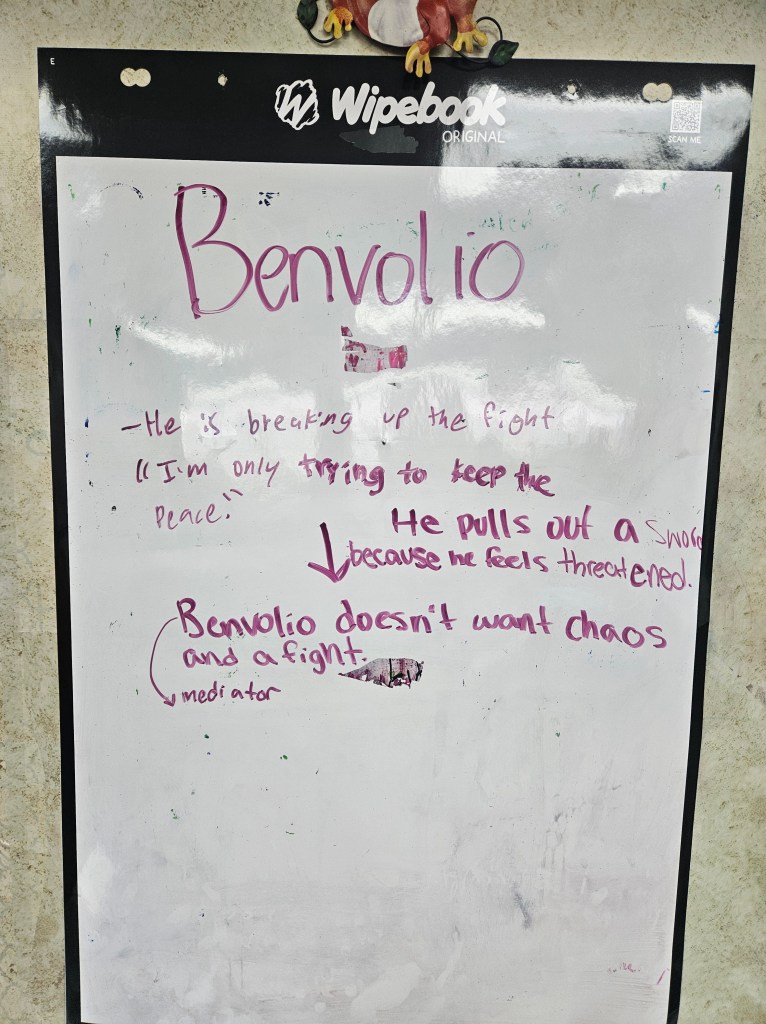 E
Wipebook
ORIGINAL
SCAN ME
Benvolio
- He is breaking up the fight
"I'm only trying to keep the
peace."
He pulls out a sword
because he feels threatened.
Benvolio doesn't want chaos
and a fight.
mediator